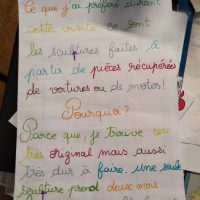 Ce que j'ai préféré durant
cette visite, ce sont
les sculptures faites, à
partir de pièces récupérées
de voitures ou de motos!
Pourquoi?
Parce que, je trouve ça
très original mais aussi
très dur à faire. Une seule
sculpture prend deux mois